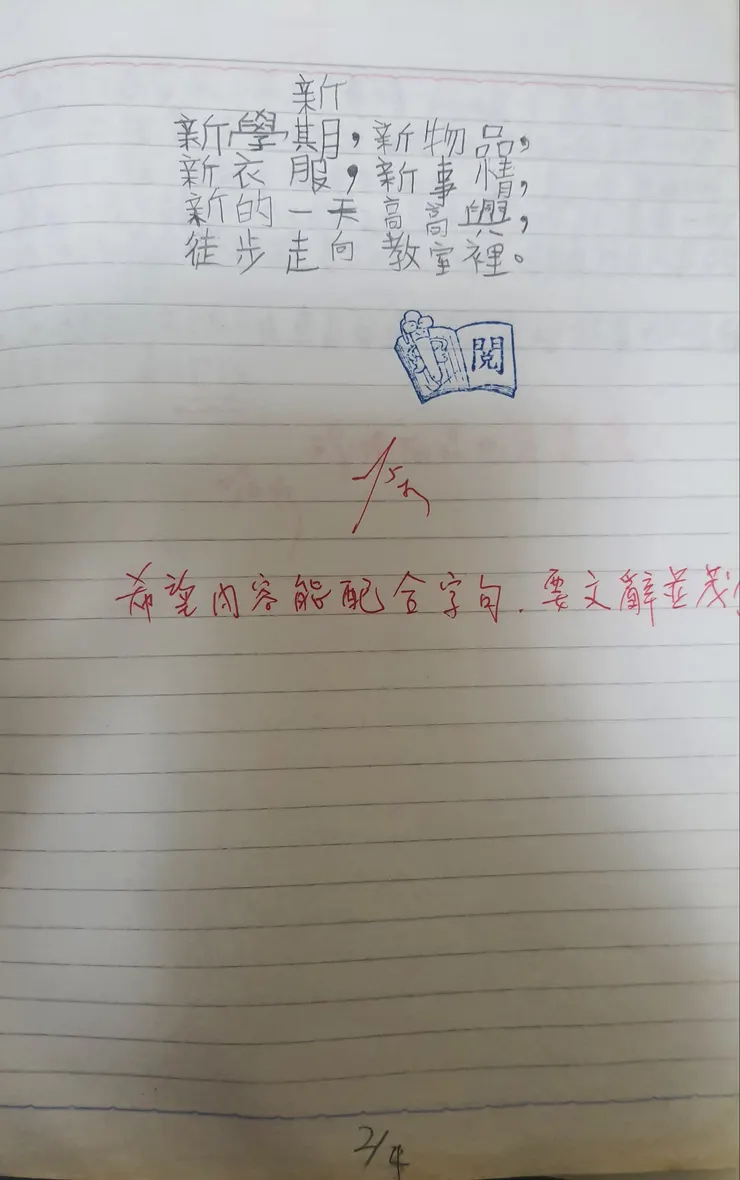 新
新學期，新物品，
新衣服，新事情，
新的一天高高興，
徒步走向教室裡。
閱
希望內容能配合字句，要文辭並茂
2/4